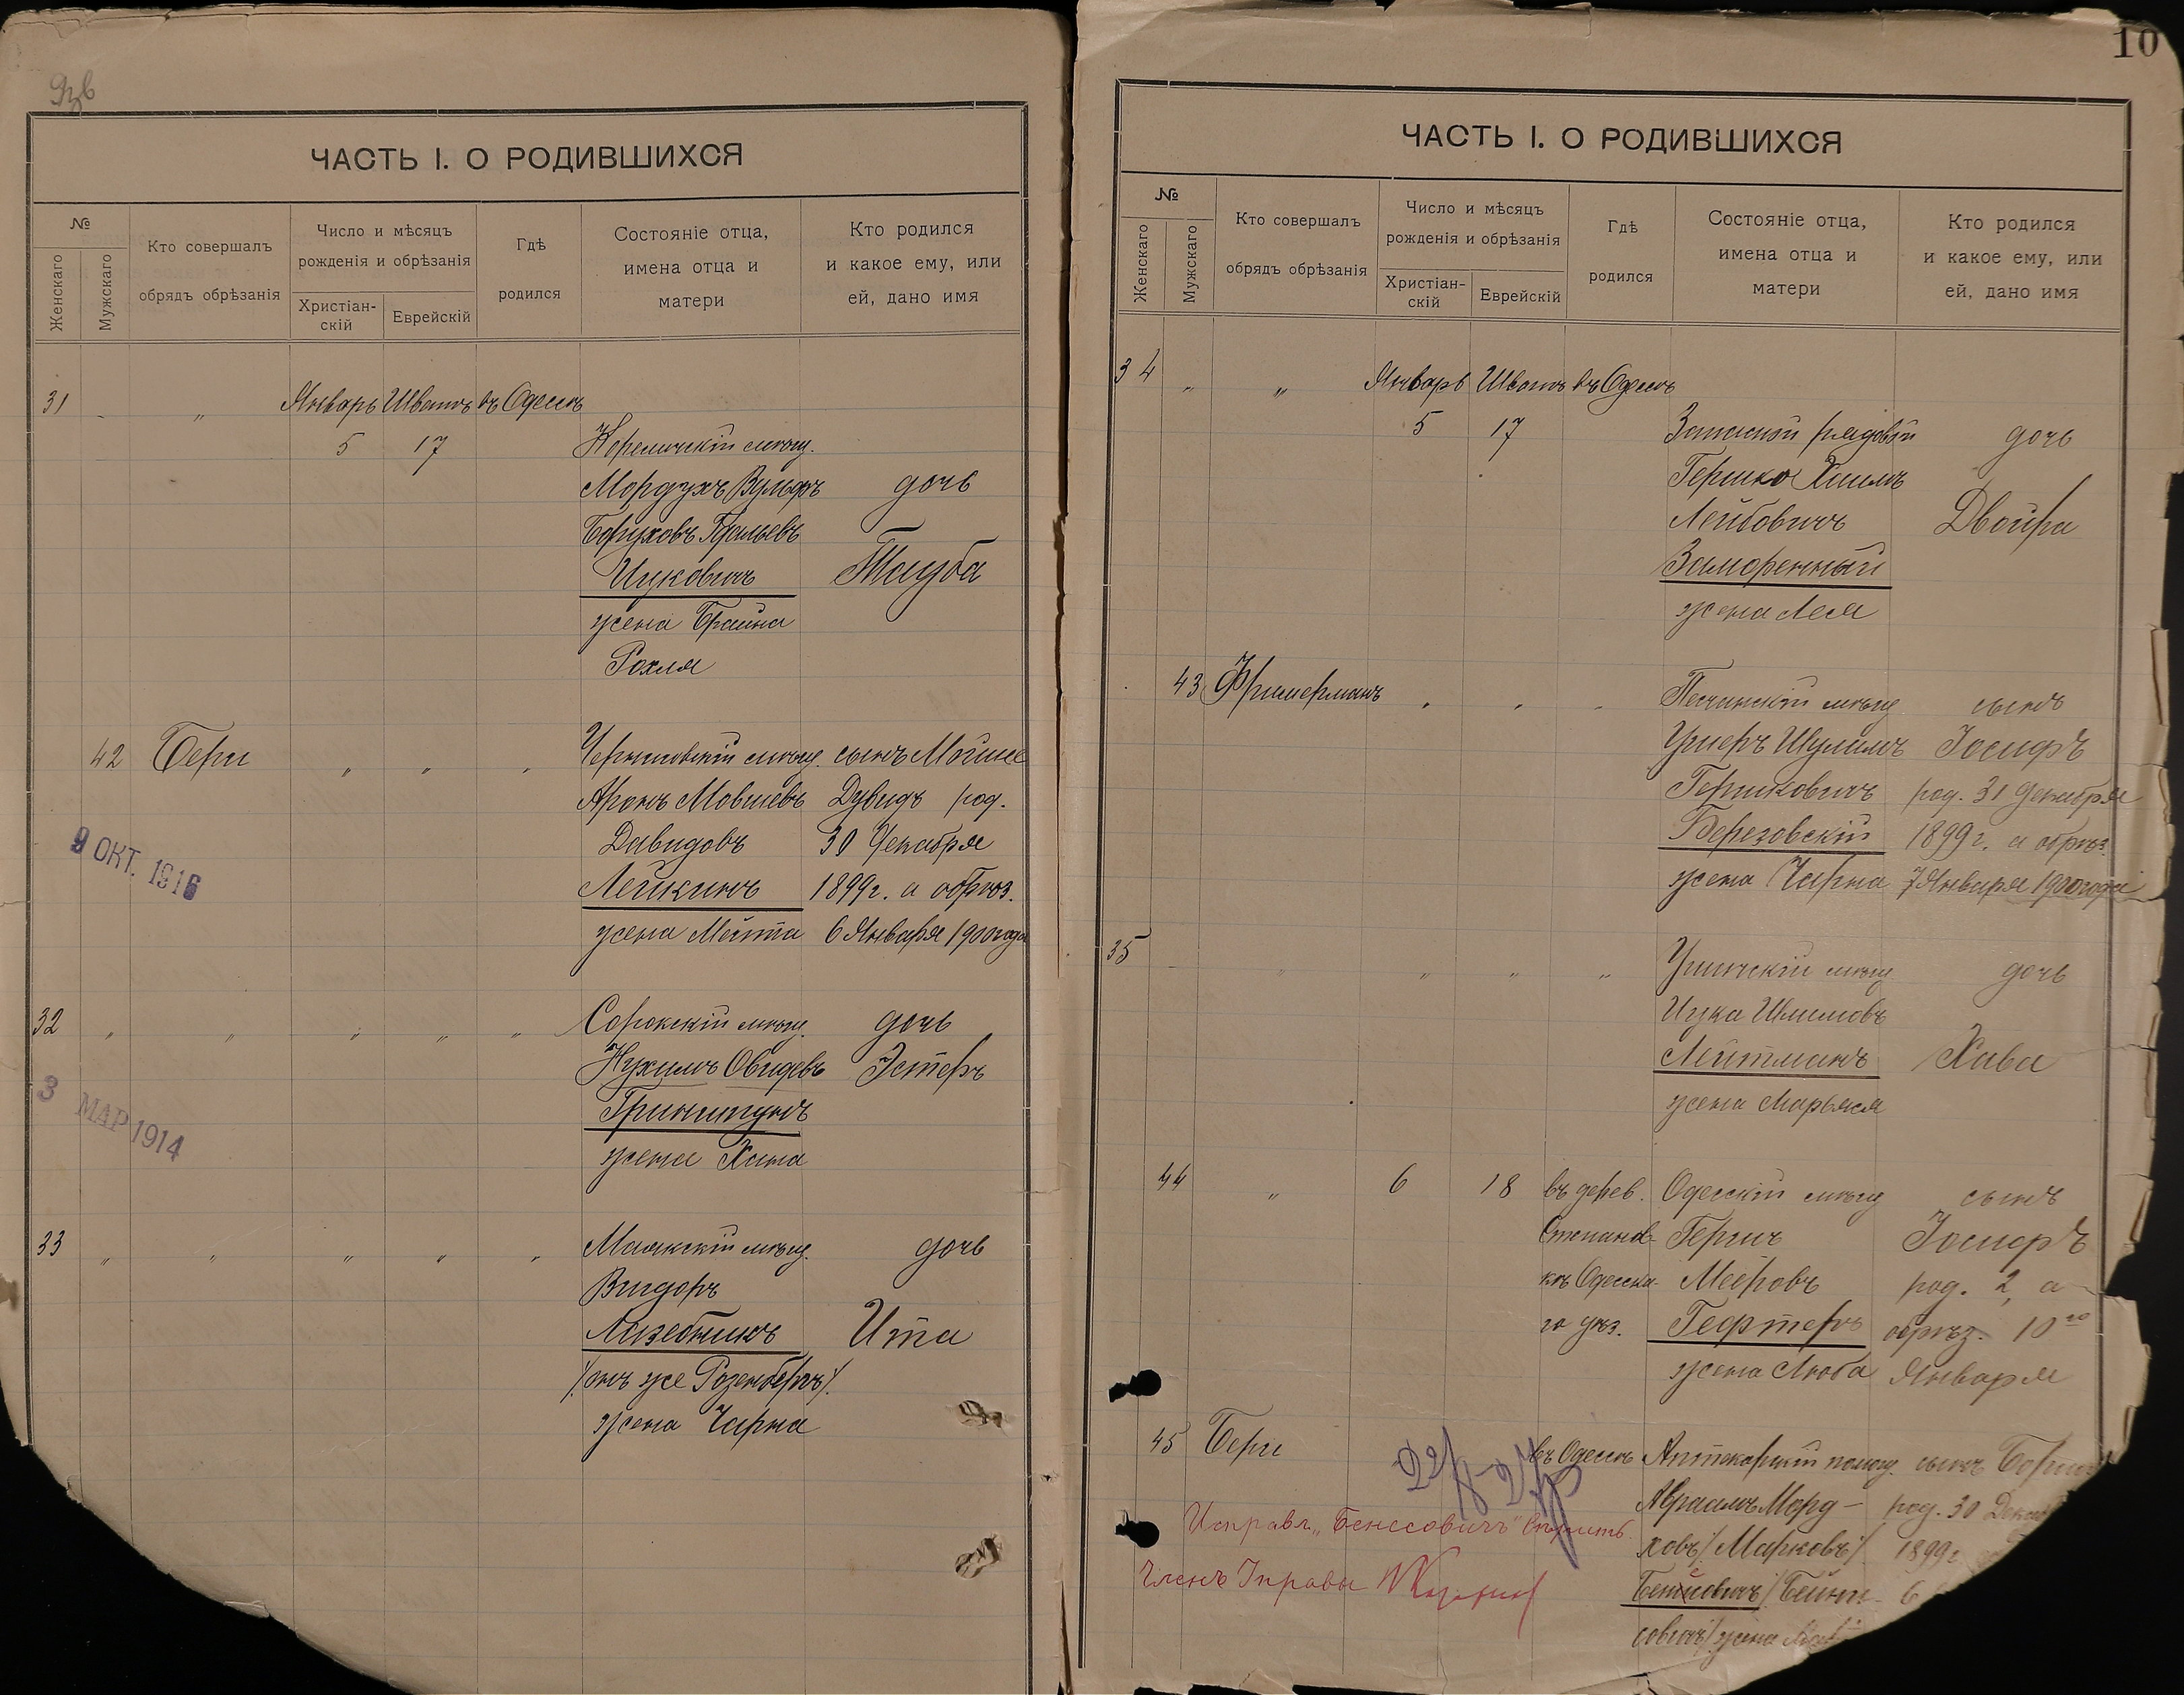 ЧАСТЬ I. О РОДИВШИХСЯ
№
Женскаго
Мужскаго
Кто совершалъ
обрядъ обрѣзанія
Число и мѣсяцъ
рожденія и обрѣзанія
Христіан-
скій
Еврейскій
Гдѣ
родился
Состояніе отца,
имена отца и
матери
Кто родился
и какое ему, или
ей, дано имя
31 " Январь Шватъ въ Одессѣ
5 17 Кореличскій мѣщ.
Мордухъ Вульфъ дочь
Боруховъ
Ицковичъ Тауба
жена Брайна
Рохля
42 Бери " " " мѣщ. сынъ Мойше
Аронъ Мовшевъ Дувидъ род.
Давидовъ 30 Декабря
Лейкинъ 1899г. а обрѣз.
жена Мейта 6 Января 1900 года
9 ОКТ. 1916
32 " " " " " Сорокскій мѣщ. дочь
Нухимъ Овидевъ Эстеръ
Гринштунъ
жена Хина
3 МАР 1914
33 " " " " " Маякскій мѣщ. дочь
Вигдоръ
Лизебникъ Ита
/онъ же Розенбергъ/.
жена Чарна
10
ЧАСТЬ I. О РОДИВШИХСЯ
№
Женскаго
Мужскаго
Кто совершалъ
обрядъ обрѣзанія
Число и мѣсяцъ
рожденія и обрѣзанія
Христіан-
скій
Еврейскій
Гдѣ
родился
Состояніе отца,
имена отца и
матери
Кто родился
и какое ему, или
ей, дано имя
34 " " Январь Шватъ въ Одессѣ
5 17 Запасной рядовой дочь
Гершко Хаимъ
Лейбовичъ Двойра
Заморенный
жена Лея
43 Фришерманъ " " " Песчанскій мѣщ. сынъ
Ушеръ Шулимъ Іосифъ
Гершковичъ род. 31 Декабря
Березовскій 1899г. а обрѣз.
жена Чарна 7 Января 1900 года
35 " " " " мѣщ. дочь
Ицка Шлимовъ
Лейтманъ Хава
жена Марьяся
44 " 6 18 въ дерев. Одесскій мѣщ. сынъ
Степанов- Гершъ Іосифъ
кѣ Одесска- Мееровъ род. 2, а
го уѣз. Гефтеръ обрѣз. 10го
жена Люба Января
45 Бери въ Одессѣ Аптекарскій помощ. сынъ
Авраамъ Морд- род. 30
ховъ /Марковъ/ 1899г.
/Бейне- 6
совичъ/ жена
Исправл. „Бенесовичъ"
Членъ Управы